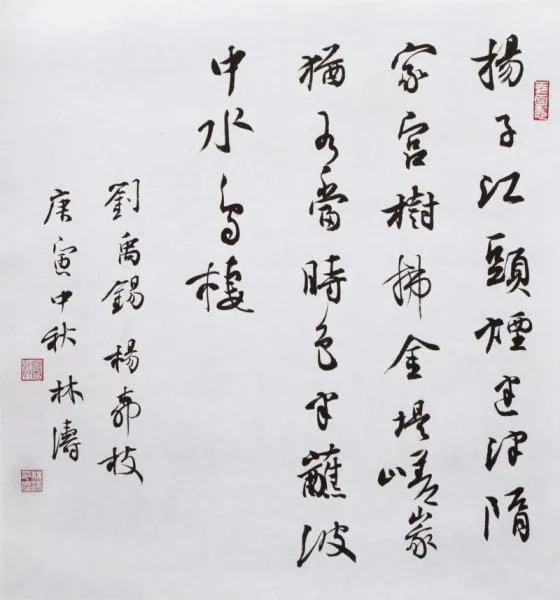 揚子江頭煙迷津隋
家宮樹拂金堤嵯峨
猶有當時色半蘸波
中水鳥棲
劉禹錫 楊柳枝
庚寅中秋 林濤